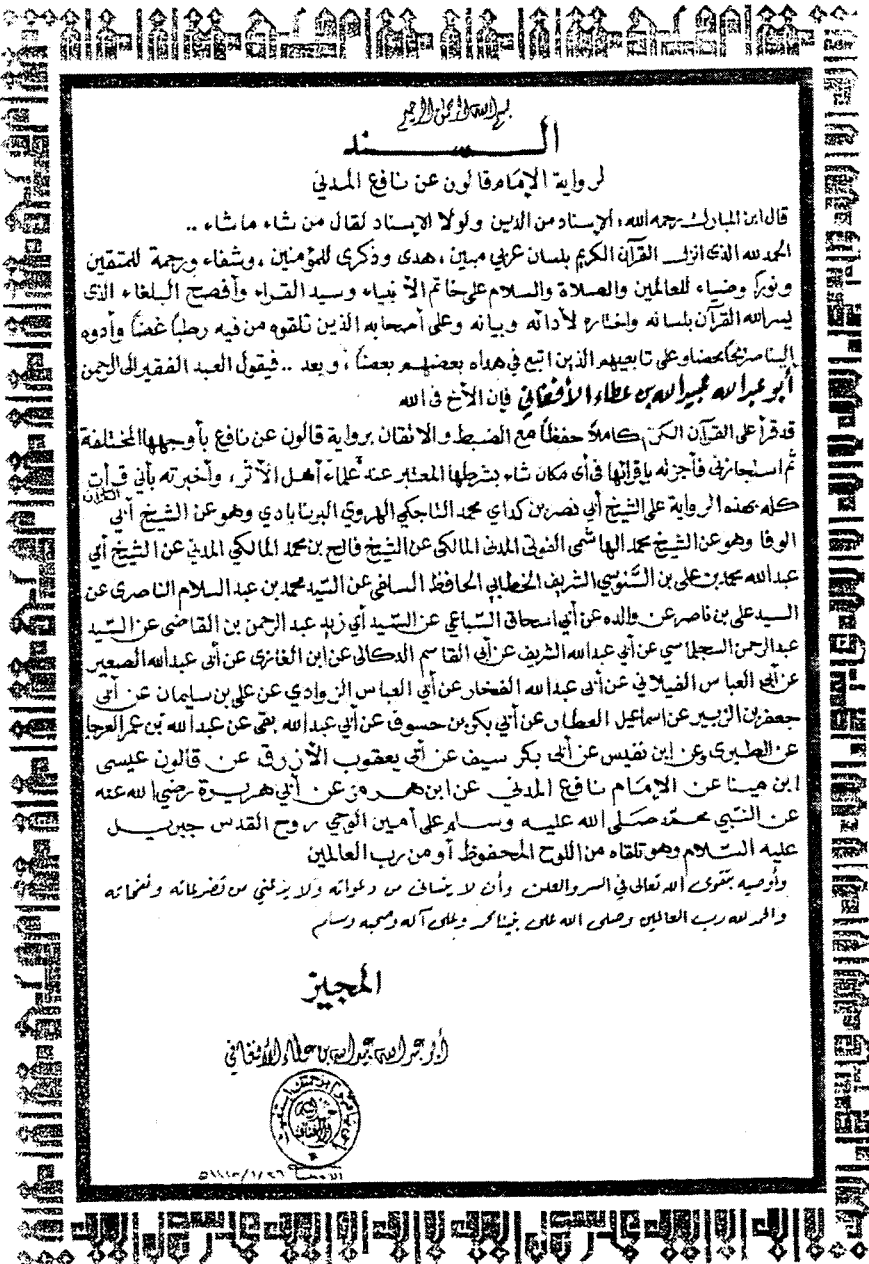 بسم الله الرحمن الرحيم
السند
لرواية الإمام قالون عن نافع المدني
قال ابن المبارك رحمه الله: الإسناد من الدين ولولا الإسناد لقال من شاء ما شاء ..
الحمد لله الذي أنزل القرآن الكريم بلسان عربي مبين، هدى وذكرى للمؤمنين، وشفاء ورحمة للمتقين
ونورًا وضياء للعالمين والصلاة والسلام على خاتم الأنبياء وسيد القراء وأفصح البلغاء الذي
يسر الله القرآن بلسانه واختاره لأدائه وبيانه وعلى أصحابه الذين تلقوه من فيه رطبًا غضًا وأدوه
إلينا صريحًا محضا وعلى تابعيهم الذين اتبع في هداه بعضهم بعضًا، وبعد .. فيقول العبد الفقير إلى الرحمن
أبو عبد الله عبيد الله بن عطاء الأفغاني فإن الأخ في الله
قد قرأ علي القرآن الكريم كاملاً حفظًا مع الضبط والاتقان برواية قالون عن نافع بأوجهها المختلفة
ثم استجازني فأجزته بإقرائها في أي مكان شاء بشرطها المعتبر عند علماء أهل الأثر، وأخبرته بأني قرأت القرآن
كله بهذه الرواية على الشيخ أبي نصر بن كداي محمد التاجكي الهروي البرنابادي وهو عن الشيخ أبي
الوفا وهو عن الشيخ محمد الهاشمي الفوتي المدني المالكي عن الشيخ فالح بن محمد المالكي المدني عن الشيخ أبي
عبد الله محمد بن علي بن السنوسي الشريف الخطابي الحافظ السلفي عن السيد محمد بن عبد السلام الناصري عن
السيد علي بن ناصر عن والده عن أبي اسحاق السباعي عن السيد أبي زيد عبد الرحمن بن القاضي عن السيد
عبد الرحمن السجلماسي عن أبي عبد الله الشريف عن أبي القاسم الدكالي عن ابن الغازي عن أبي عبد الله الصغير
عن أبي العباس الفيلالي عن أبي عبد الله الفخار عن أبي العباس الزواوي عن علي بن سليمان عن أبي
جعفر بن الزبير عن اسماعيل العطار عن أبي بكر بن حسون عن أبي عبد الله بقي عن عبد الله بن عمر العرجا
عن الطبري عن ابن نفيس عن أبي بكر سيف عن أبي يعقوب الأزرق عن قالون عيسى
ابن مينا عن الإمام نافع المدني عن ابن هرمز عن أبي هريرة رضي الله عنه
عن النبي محمد صلى الله عليه وسلم على أمين الوحي روح القدس جبريل
عليه السلام وهو تلقاه من اللوح المحفوظ أو من رب العالمين
وأوصيه بتقوى الله تعالى في السر والعلن وأن لا ينساني من دعواته ولا يدعني من تضرعاته ونفحاته
والحمد لله رب العالمين وصلى الله على نبينا محمد وعلى آله وصحبه وسلم
المجيز
أبو عبد الله عبيد الله بن عطاء الأفغاني